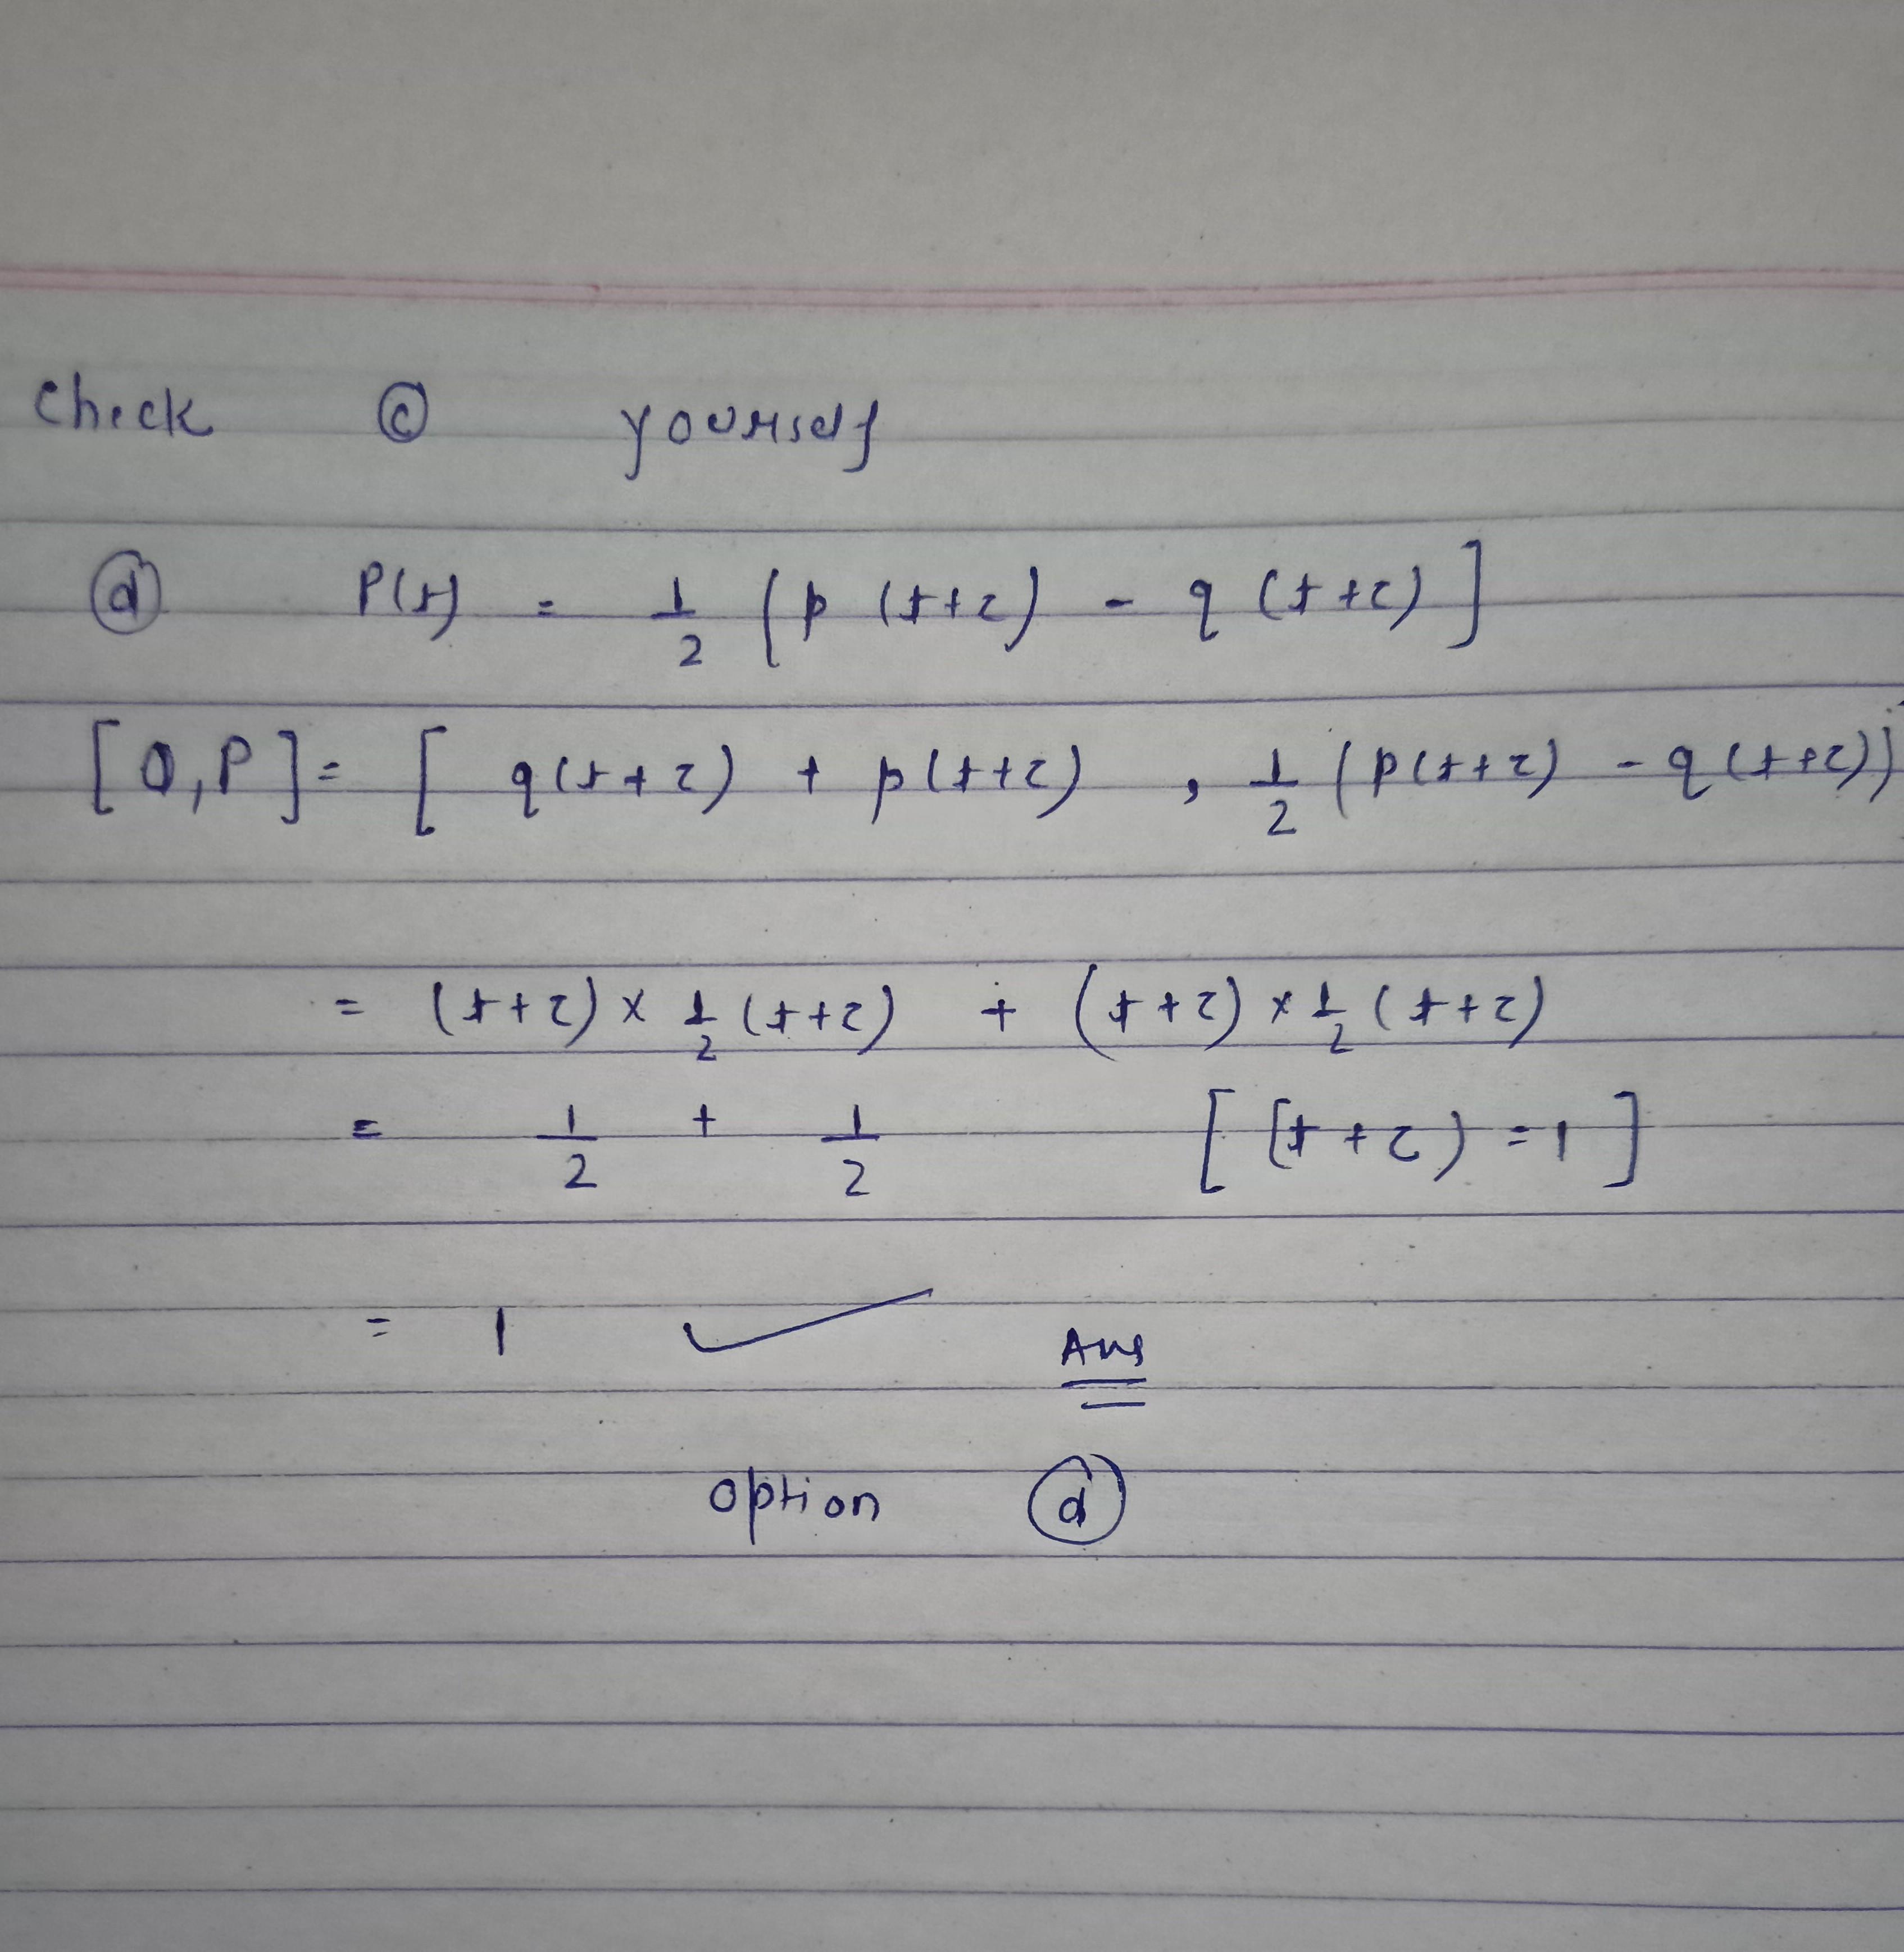 Check ⓒ yourself
ⓓ P(t) = 1/2 (p (t+τ) - q (t+τ)]
[Q,P] = [ q(t+τ) + p(t+τ) , 1/2 (p(t+τ) - q(t+τ))]
= (t+τ) x 1/2 (t+τ) + (t+τ) x 1/2 (t+τ)
= 1/2 + 1/2 [ (t+τ) = 1 ]
= 1 ✓ Ans
option ⓓ